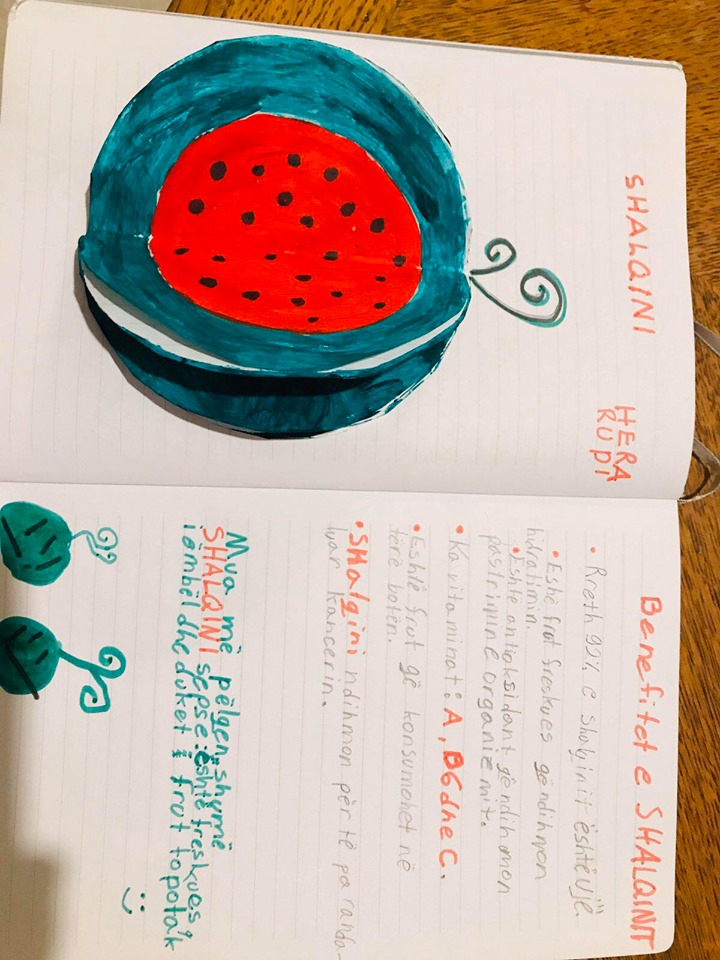 SHALQINI
HERA
RUPI
Benefitet e SHALQINIT
• Rreth 92% e shalqinit është ujë.
• Eshë frut freskues që ndihmon
hidratimin.
• Është antioksidant që ndihmon
pastrimin e organizmit.
• Ka vitaminat: A, B6 dhe C.
• Eshtë frut që konsumohet në
tërë botën.
• SHalqini ndihmon për të paranda-
luar kancerin.
Mua më pëlqen shumë
SHALQINI sepse: është freskues,
i ëmbël dhe duket i frut topolak
:)